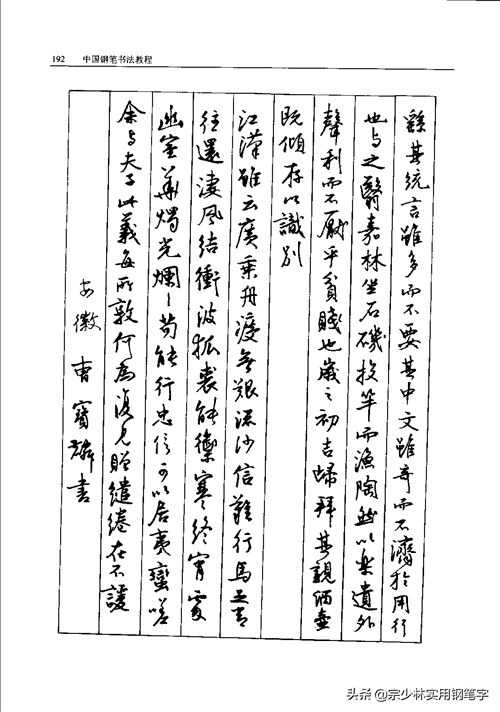 192 中国钢笔书法教程
繇其統言雖多而不要其中文雖奇而不濟於用行
也与之翳嘉林坐石磯投竿而漁陶然以樂遺外
聲利而不厭乎貧賤也歲之初吉歸拜其親酒壺
既傾存以識別
江漢雖云廣乘舟渡無艱流沙信難行馬足常
往還淒風結衝波狐裘能禦寒終宵處
幽室華燭光爛々苟能行忠信可以居夷蠻嗟
余与夫子此義每所敦何為復見贈繾綣在不諼
安徽曹寶麟書
头条@宗少林实用钢笔字